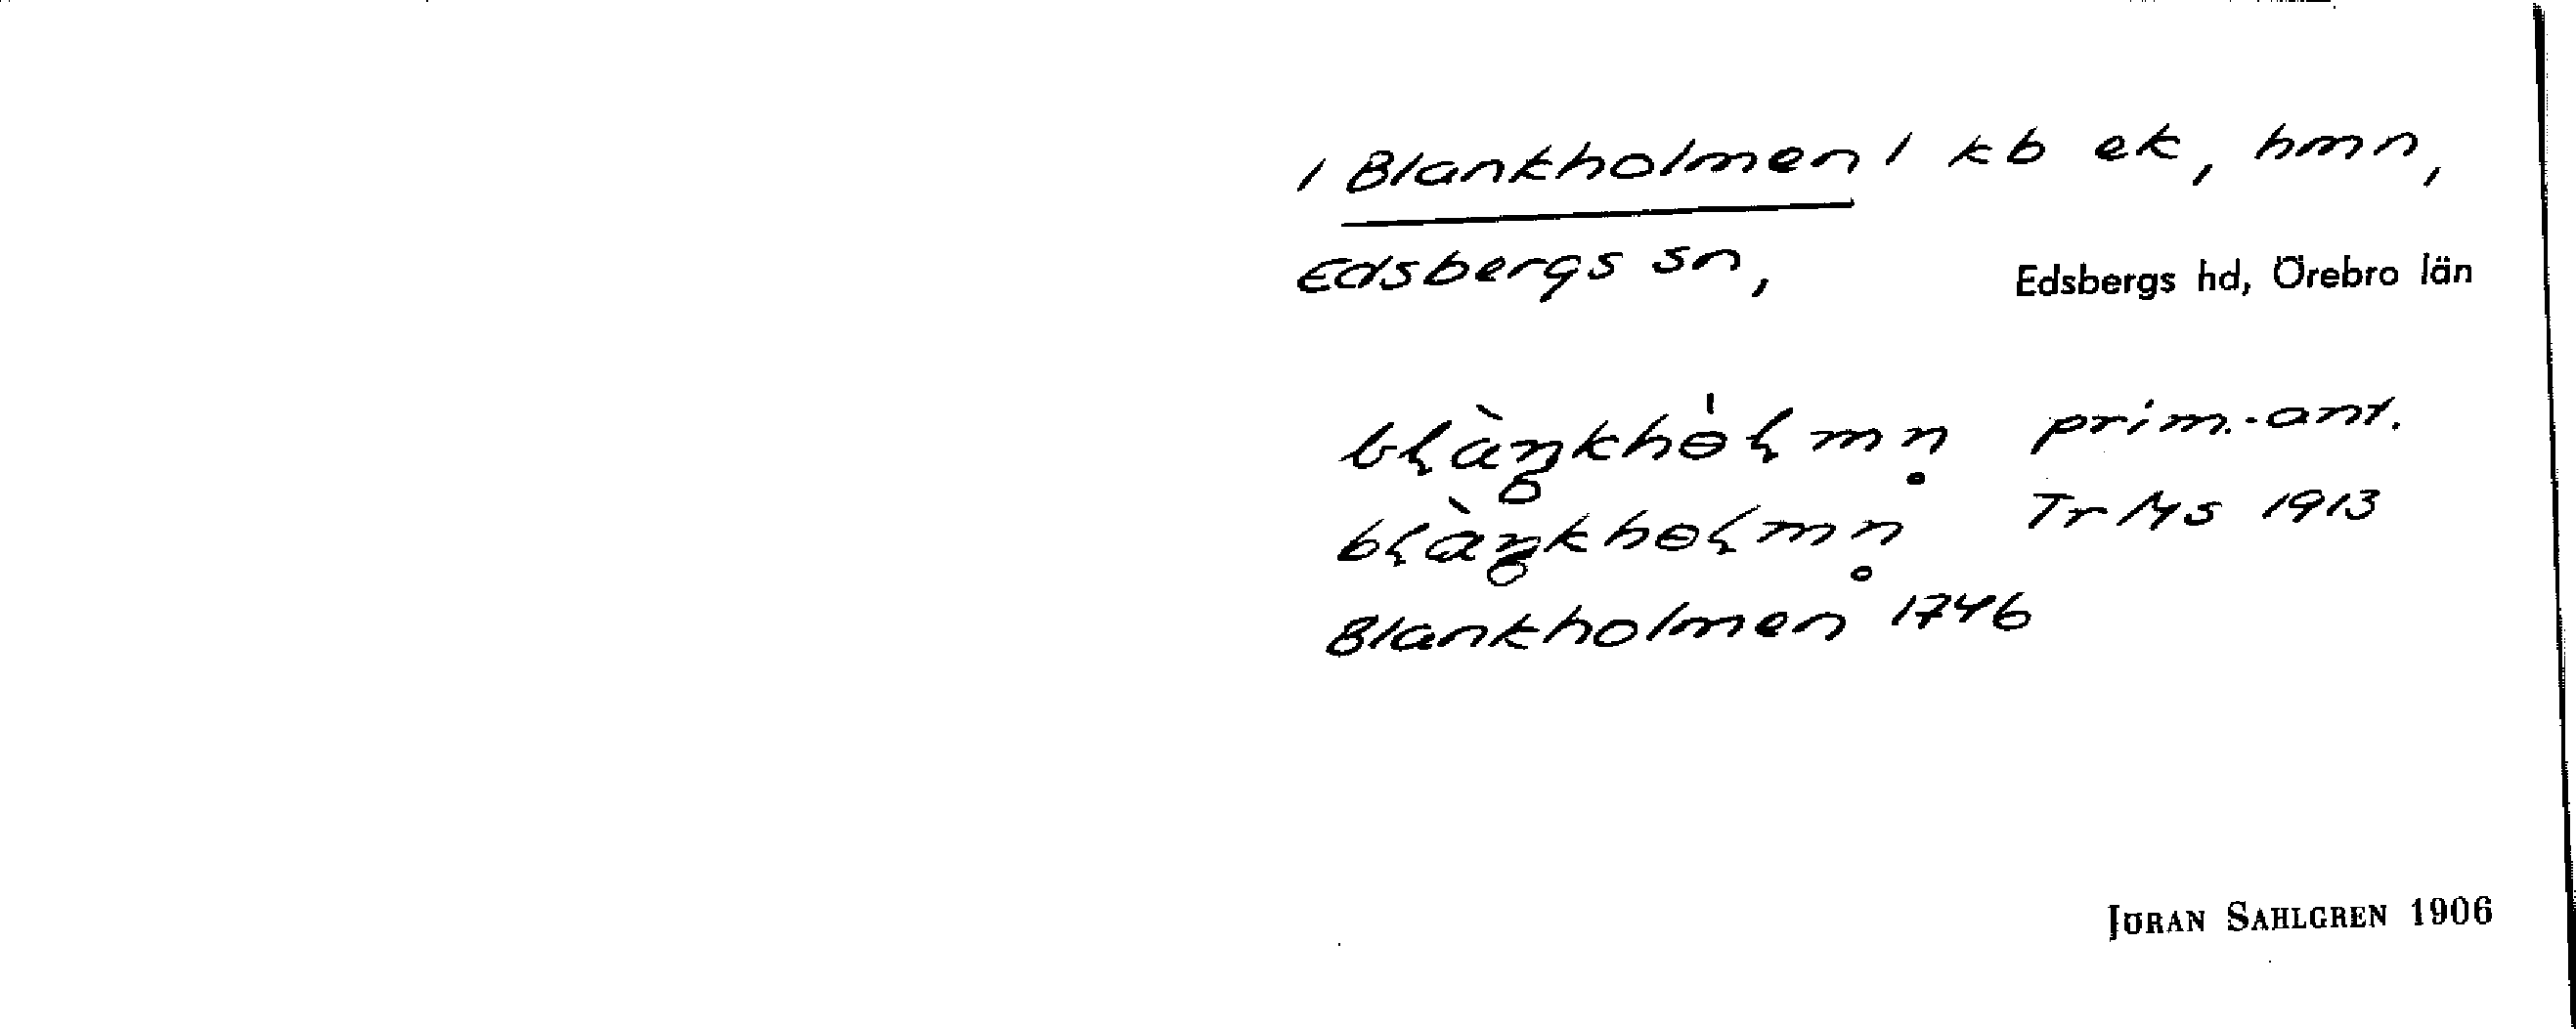 / Blankholmen / kb ek, hmn,
Edsbergs sn, Edsbergs hd, Örebro län
prim.-ant.
Tr Ms 1913
Blankholmen 1746
JÖRAN SAHLGREN 1906